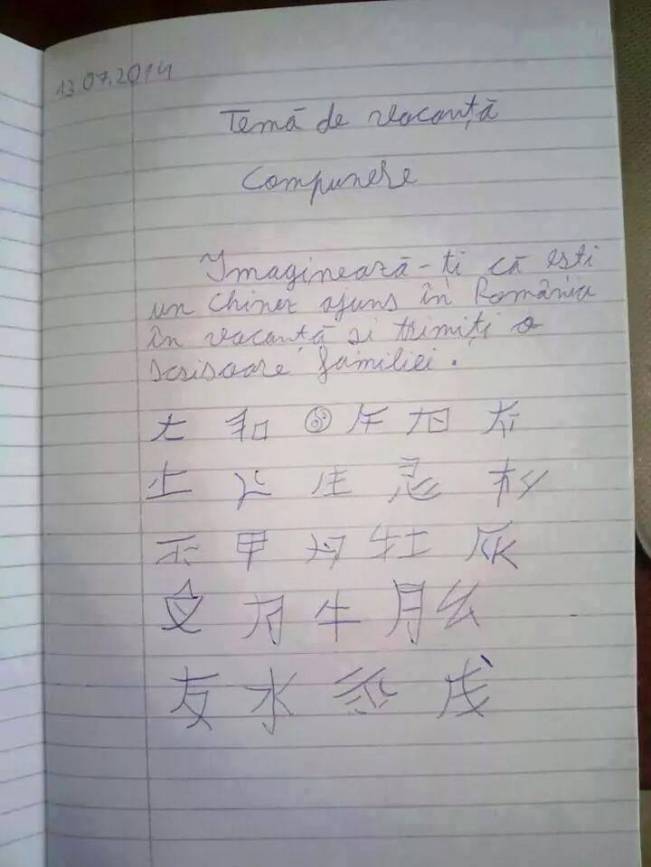 13.07.2014
Temă de vacanță
Compunere
Imaginează-ti că esti
un chinez ajuns în România
în vacantă si trimiți o
scrisoare familiei.
大 和 午 旭
上 住 忌 杉
不 甲 牡
牛 月 幺
友 水 戊